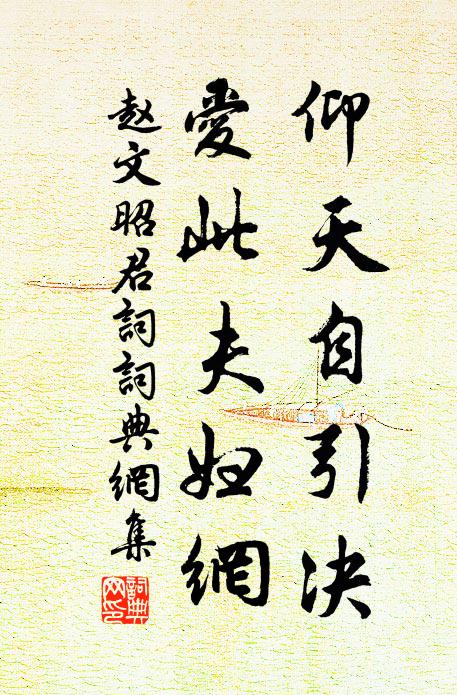 仰天自引決
愛此夫婦網
赵文昭君詞詞典網集
詞典
网印